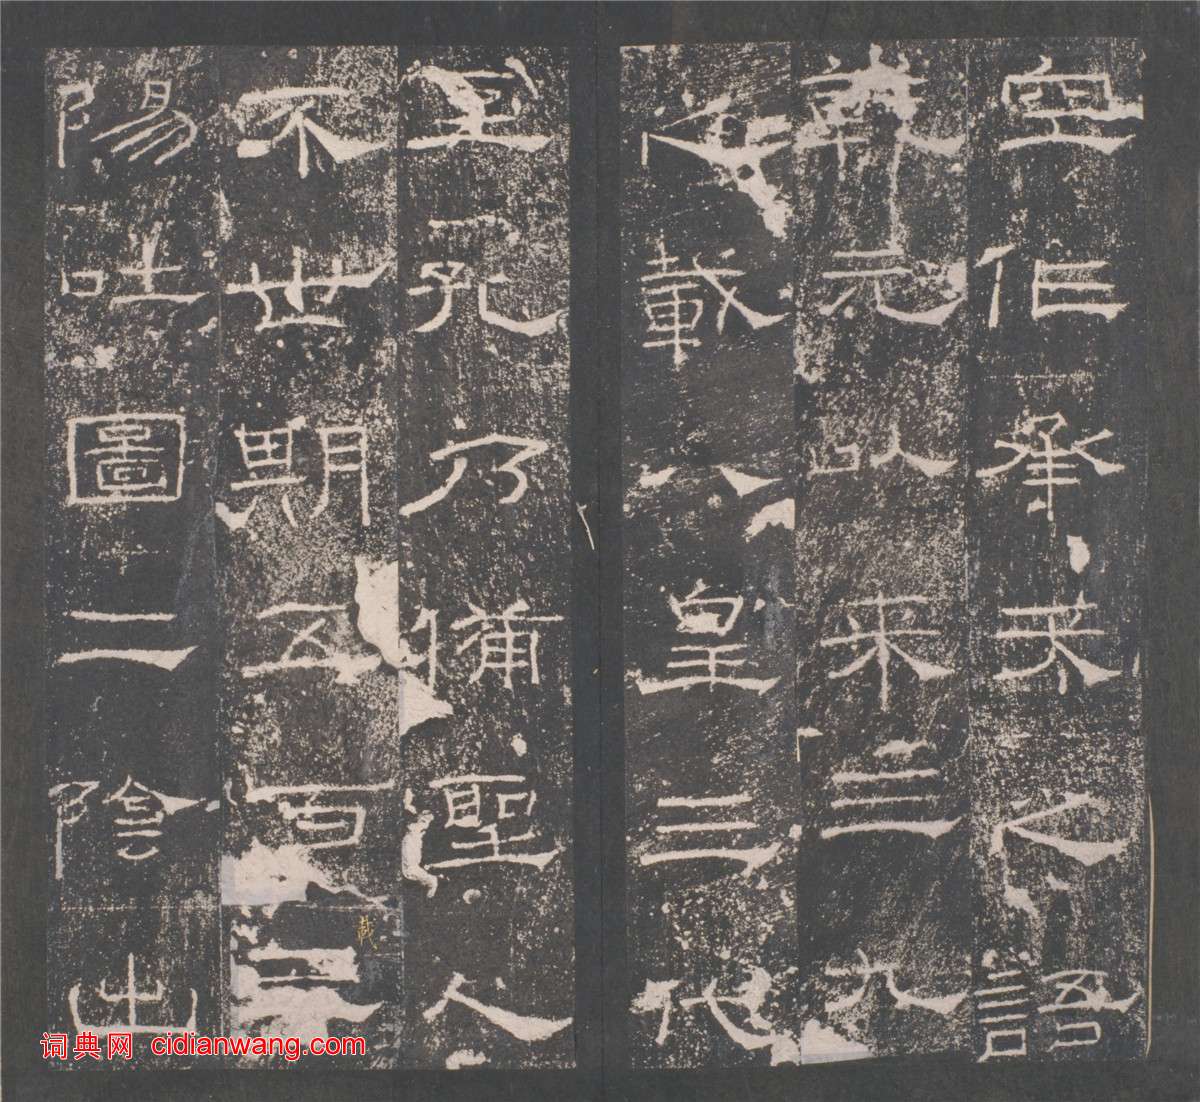 空作承天之語
乾元以來三九
之載八皇三代
至孔乃備聖人
不世期五百載三
陽吐圖二陰出
词典网 cidianwang.com